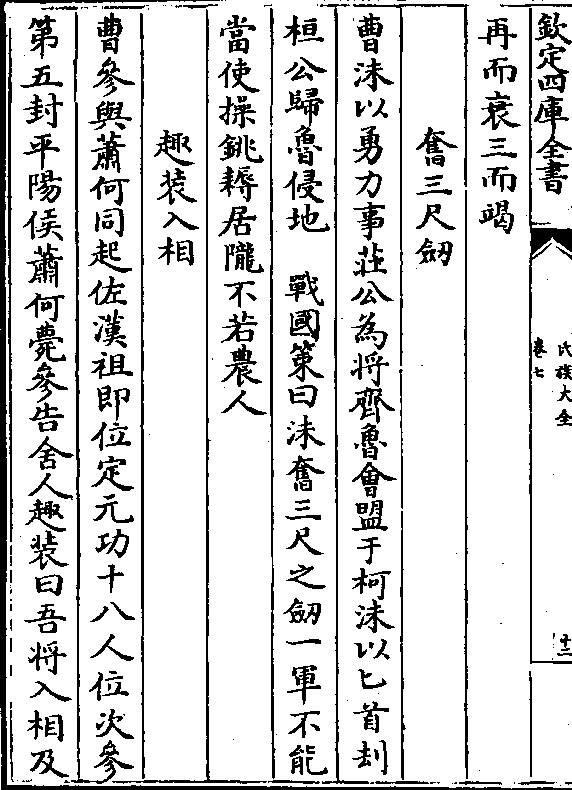 欽定四庫全書
氏族大全
卷七
十二
再而衰三而竭
奮三尺劒
曹沬以勇力事莊公為将齊魯會盟于柯沬以匕首刦
桓公歸魯侵地　戰國策曰沬奮三尺之劒一軍不能
當使操銚耨居隴不若農人
趣装入相
曹參與蕭何同起佐漢祖即位定元功十八人位次參
第五封平陽侯蕭何薨參告舍人趣装曰吾将入相及